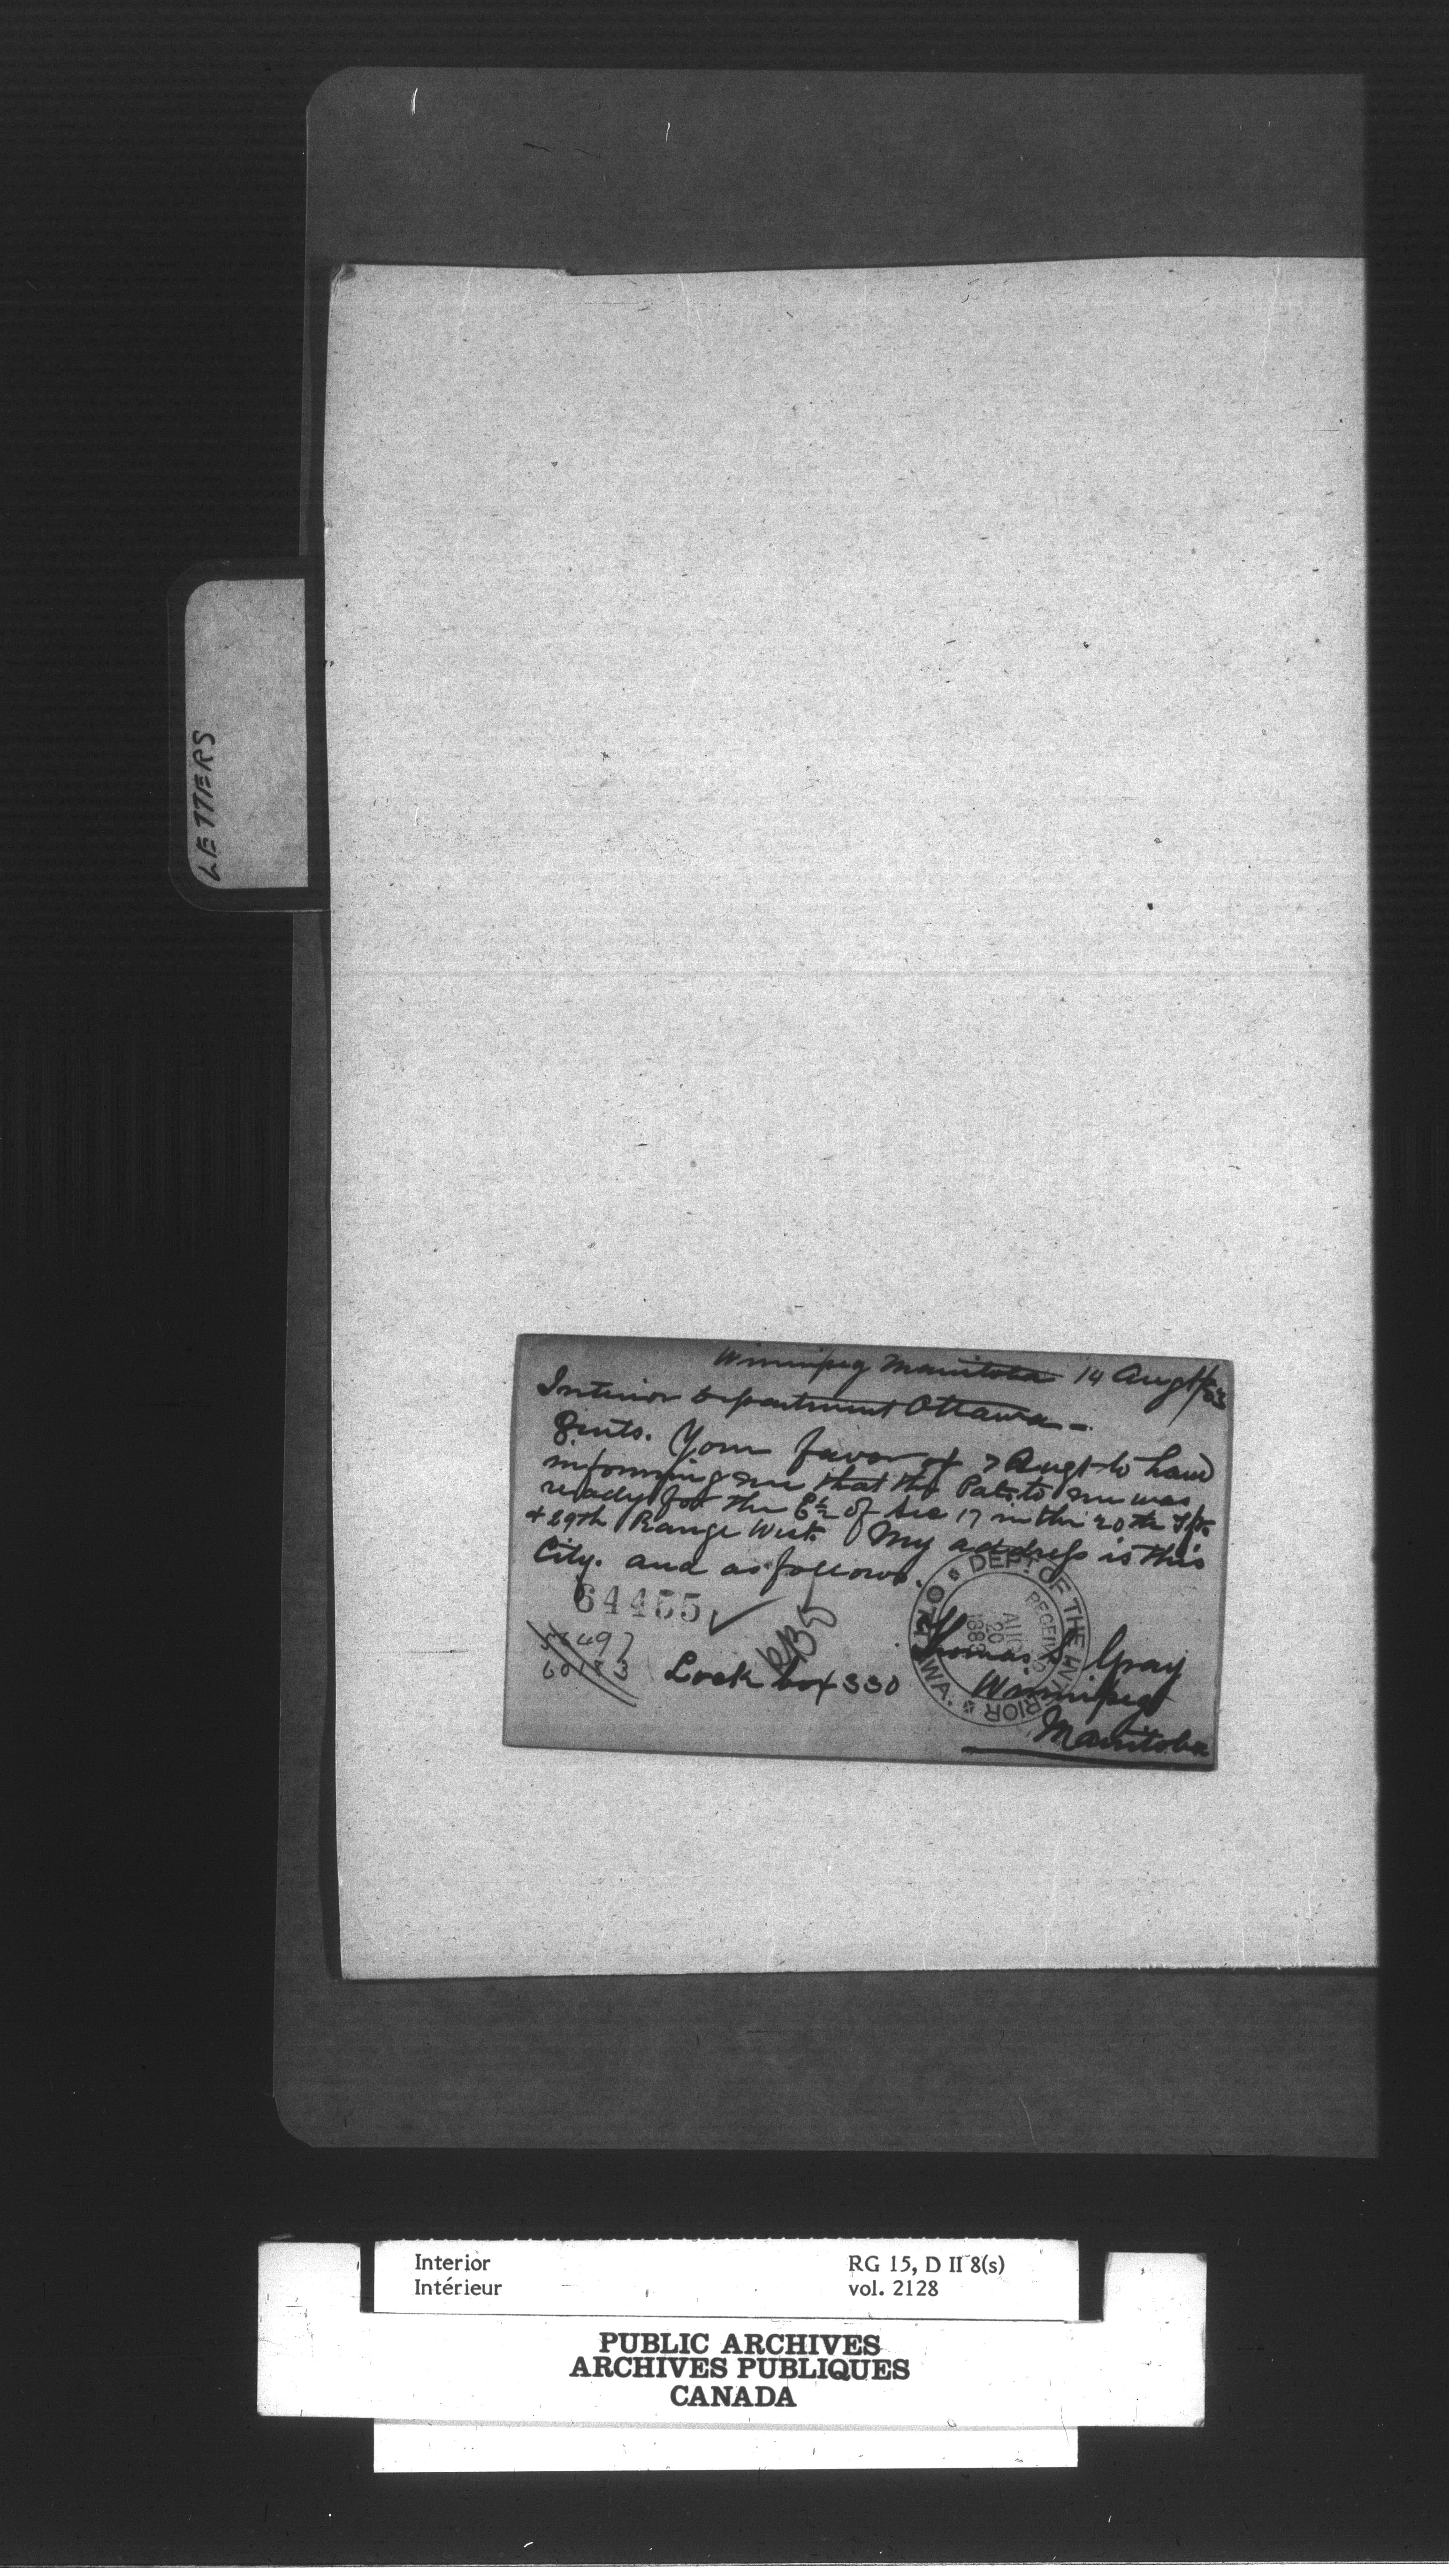 LETTERS
Winnipeg Manitoba 14 Augt/83
Interior Department Ottawa -
Gents. Your favor of 7 Augt to hand
informing me that the Patt. to me was
ready for the E½ of Sec 17 in the 20th Tp.
+ 29th Range West. My address is this
City. and as follows.
64455
Lock box 330
Thomas Gray
Winnipeg
Manitoba
DEPT. OF THE INTERIOR * OTTAWA. *
RECEIVED
AUG
20
1883
Interior
Intérieur
RG 15, D II 8(s)
vol. 2128
PUBLIC ARCHIVES
ARCHIVES PUBLIQUES
CANADA